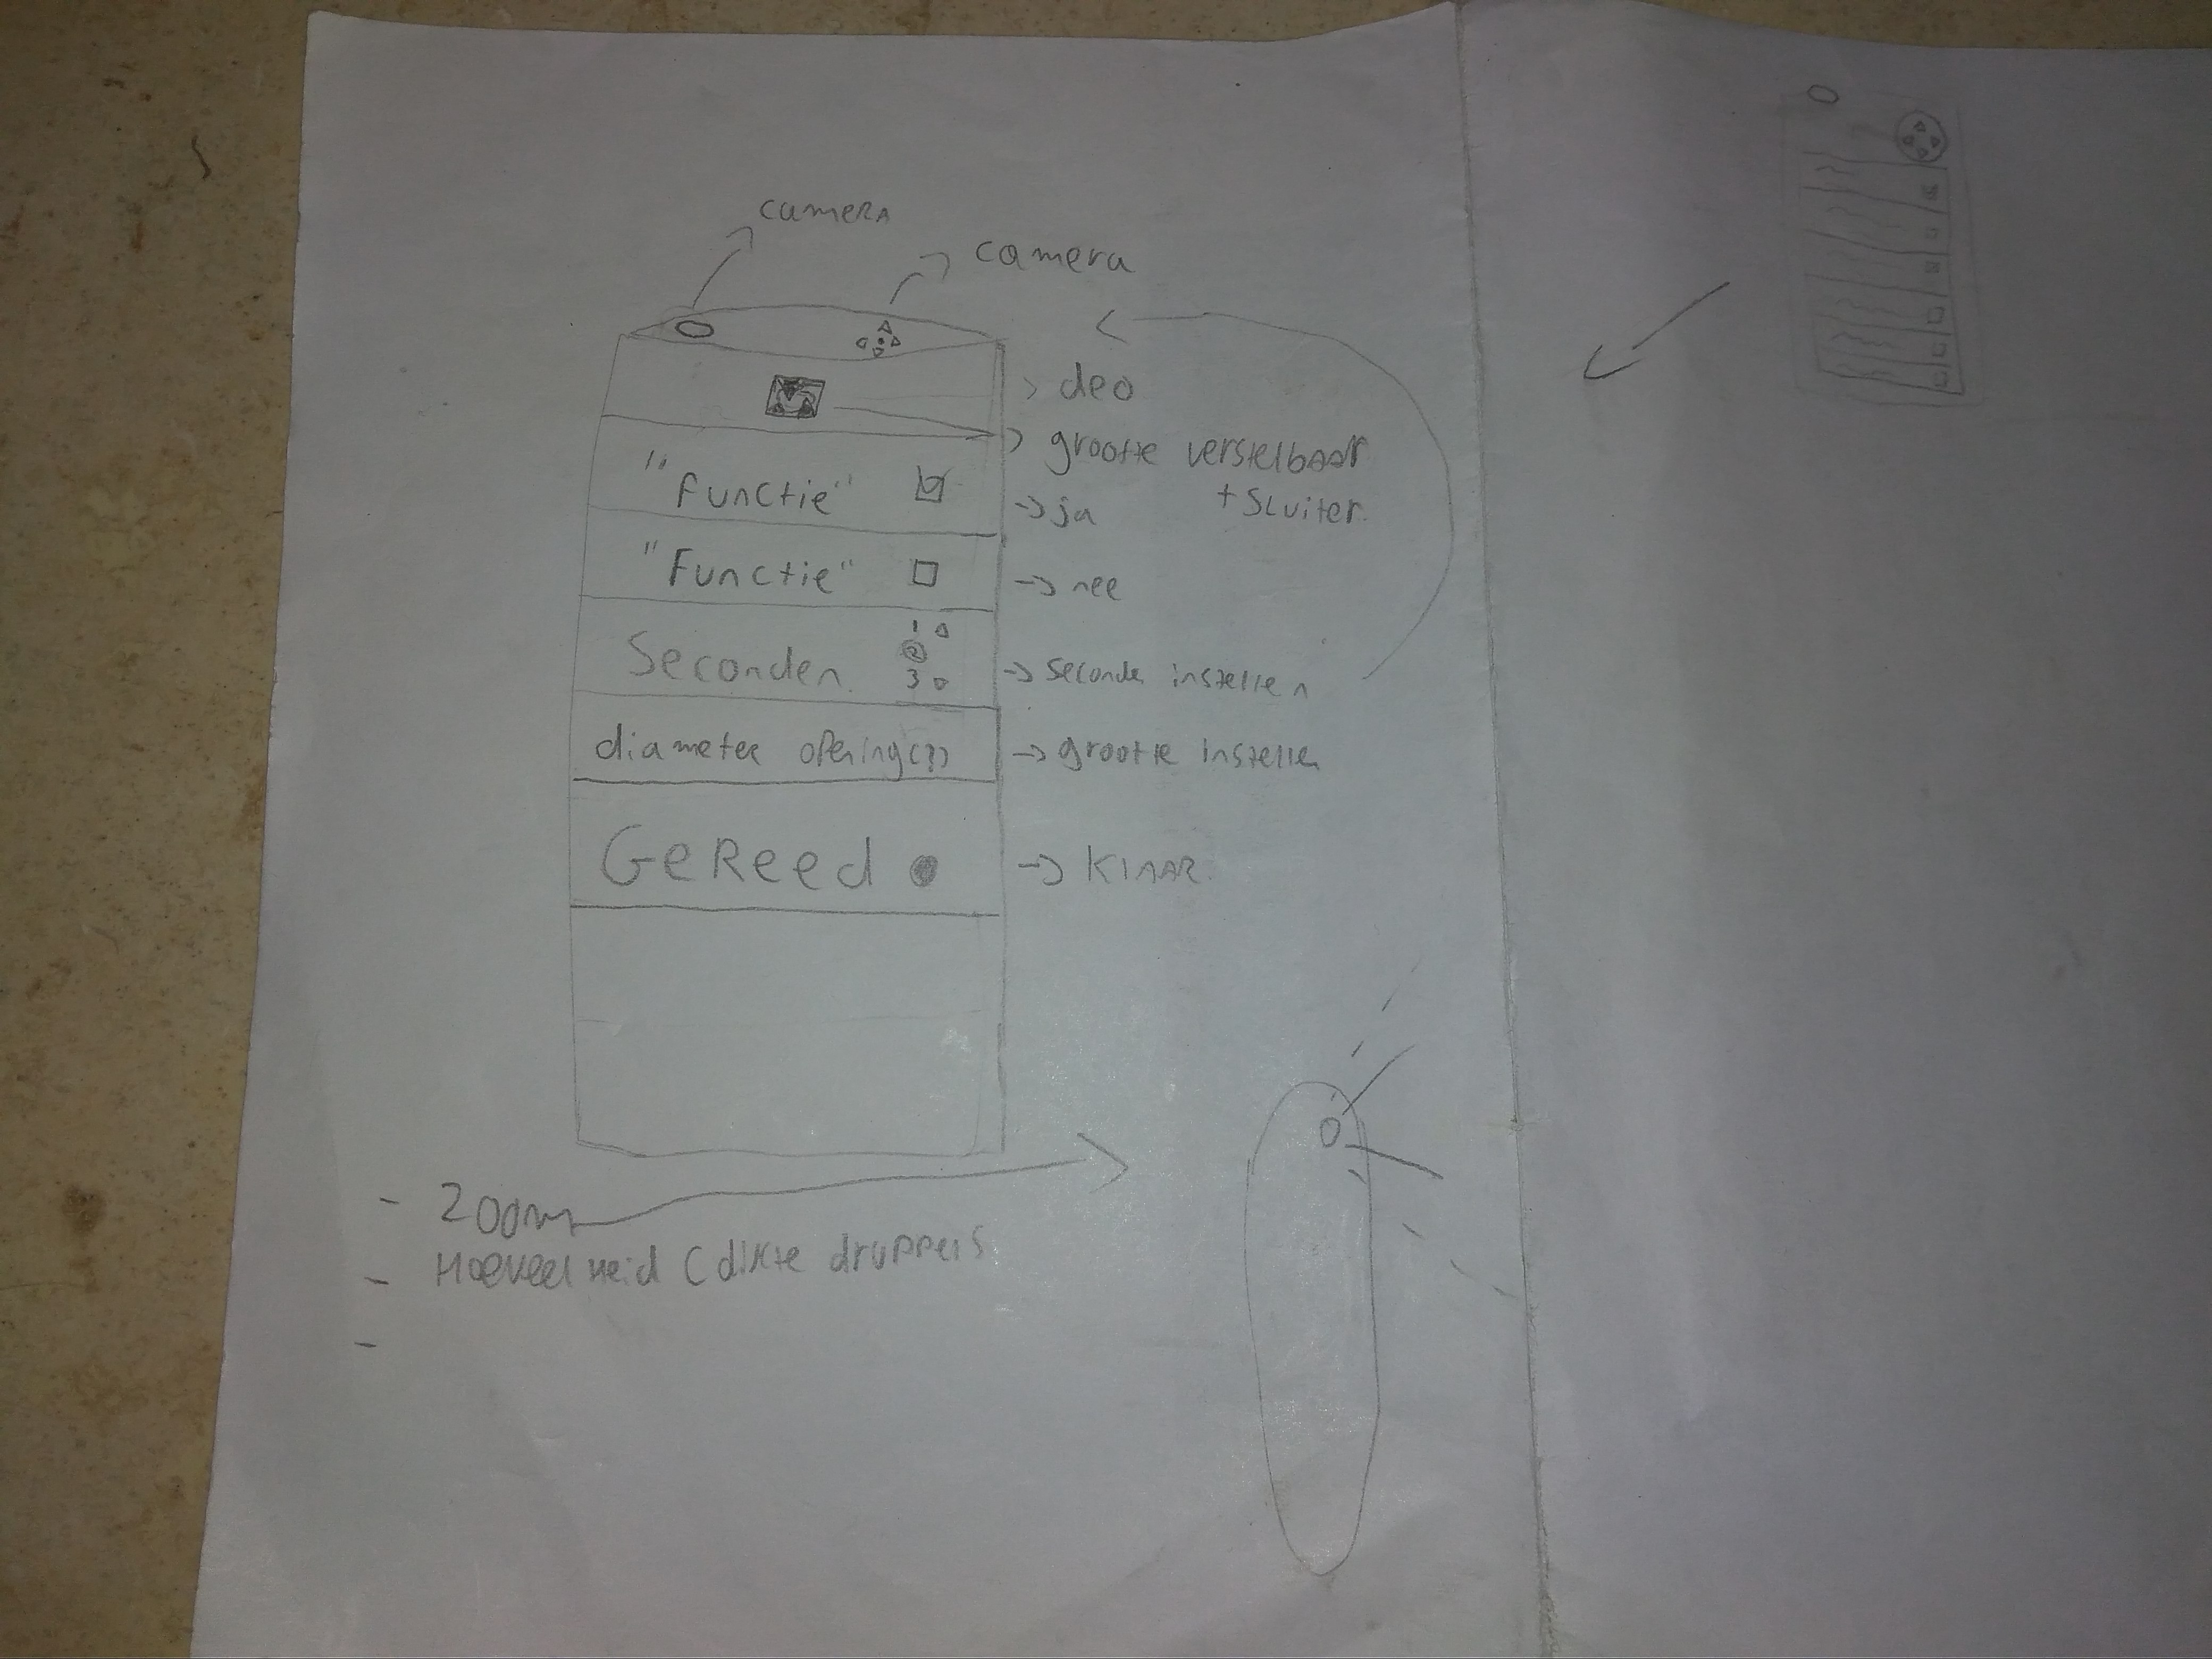 camera
camera
deo
grootte verstelbaar
+ Sluiter.
"Functie"
→ ja
"Functie"
→ nee
1
2
Seconden.
3
→ Seconde instellen
diameter opening(?)
→ grootte instellen
GeReed
→ Klaar.
- Zoom
- Hoeveelheid (dikte druppels
-